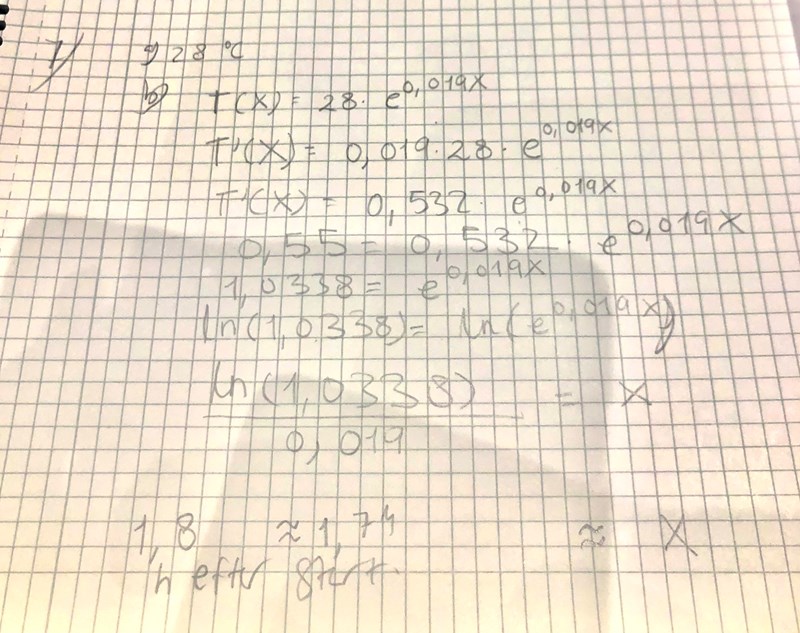 7/ a) 28 °C
b) T(x) = 28 · e^0,019x
T'(x) = 0,019 · 28 · e^0,019x
T'(x) = 0,532 · e^0,019x
0,55 = 0,532 · e^0,019x
1,0338 = e^0,019x
ln(1,0338) = ln(e^0,019x)
ln(1,0338)
0,019
= x
1,8 ≈ 1,74 ≈ x
h efter start.